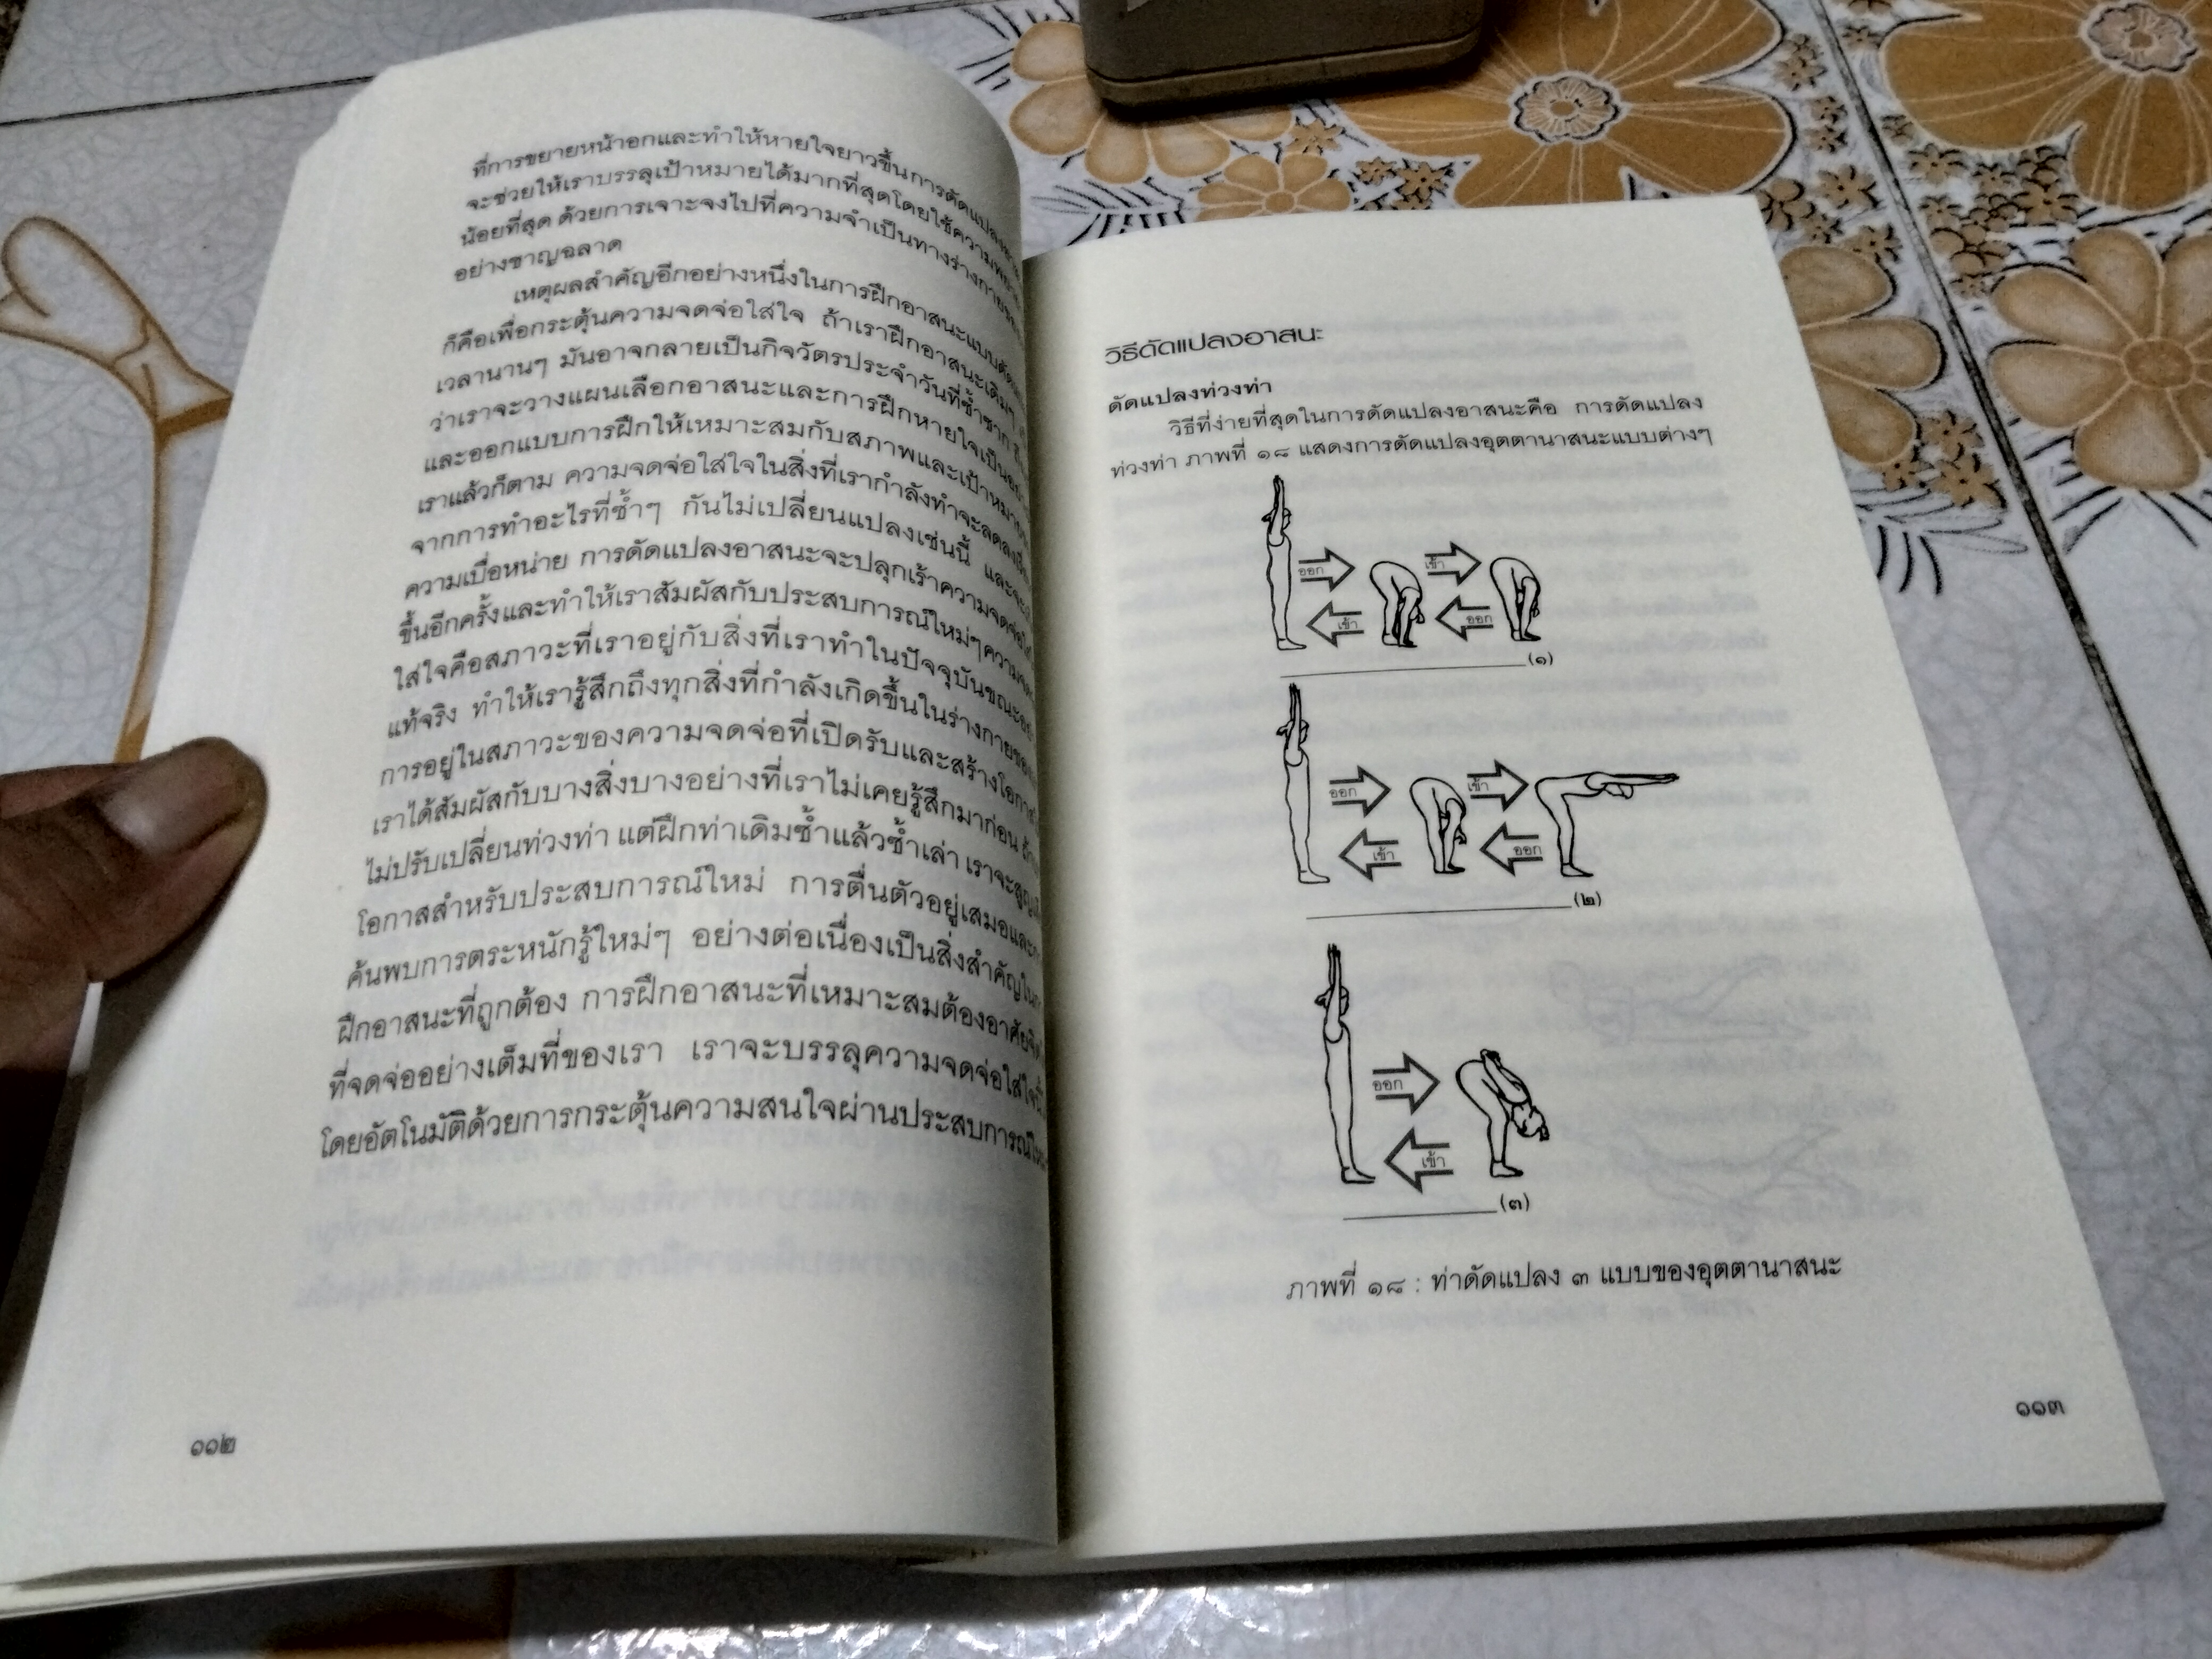 ที่การขยายหน้าอกและทำให้หายใจยาวขึ้นการดัดแปลง
จะช่วยให้เราบรรลุเป้าหมายได้มากที่สุดโดยใช้ความ
น้อยที่สุด ด้วยการเจาะจงไปที่ความจำเป็นทางร่างกาย
อย่างชาญฉลาด
เหตุผลสำคัญอีกอย่างหนึ่งในการฝึกอาสนะแบบ
ก็คือเพื่อกระตุ้นความจดจ่อใส่ใจ ถ้าเราฝึกอาสนะเดิมๆ
เวลานานๆ มันอาจกลายเป็นกิจวัตรประจำวันที่ซ้ำซาก
ว่าเราจะวางแผนเลือกอาสนะและการฝึกหายใจเป็น
และออกแบบการฝึกให้เหมาะสมกับสภาพและเป้าหมาย
เราแล้วก็ตาม ความจดจ่อใส่ใจในสิ่งที่เรากำลังทำจะลดลง
จากการทำอะไรที่ซ้ำๆ กันไม่เปลี่ยนแปลงเช่นนี้ และจะ
ความเบื่อหน่าย การดัดแปลงอาสนะจะปลุกเร้าความจดจ่อ
ขึ้นอีกครั้งและทำให้เราสัมผัสกับประสบการณ์ใหม่ๆ
ใส่ใจคือสภาวะที่เราอยู่กับสิ่งที่เราทำในปัจจุบันขณะ
แท้จริง ทำให้เรารู้สึกถึงทุกสิ่งที่กำลังเกิดขึ้นในร่างกาย
การอยู่ในสภาวะของความจดจ่อที่เปิดรับและสร้างโอกาส
เราได้สัมผัสกับบางสิ่งบางอย่างที่เราไม่เคยรู้สึกมาก่อน
ไม่ปรับเปลี่ยนท่วงท่า แต่ฝึกท่าเดิมซ้ำแล้วซ้ำเล่า เราจะ
โอกาสสำหรับประสบการณ์ใหม่ การตื่นตัวอยู่เสมอและ
ค้นพบการตระหนักรู้ใหม่ๆ อย่างต่อเนื่องเป็นสิ่งสำคัญ
ฝึกอาสนะที่ถูกต้อง การฝึกอาสนะที่เหมาะสมต้องอาศัย
ที่จดจ่ออย่างเต็มที่ของเรา เราจะบรรลุความจดจ่อใส่ใจ
โดยอัตโนมัติด้วยการกระตุ้นความสนใจผ่านประสบการณ์
๑๑๒
วิธีดัดแปลงอาสนะ
ดัดแปลงท่วงท่า
วิธีที่ง่ายที่สุดในการดัดแปลงอาสนะคือ การดัดแปลง
ท่วงท่า ภาพที่ ๑๘ แสดงการดัดแปลงอุตตานาสนะแบบต่างๆ
ออก เข้า
เข้า ออก
(๑)
ออก เข้า
เข้า ออก
(๒)
ออก
เข้า
(๓)
ภาพที่ ๑๘ : ท่าดัดแปลง ๓ แบบของอุตตานาสนะ
๑๑๓